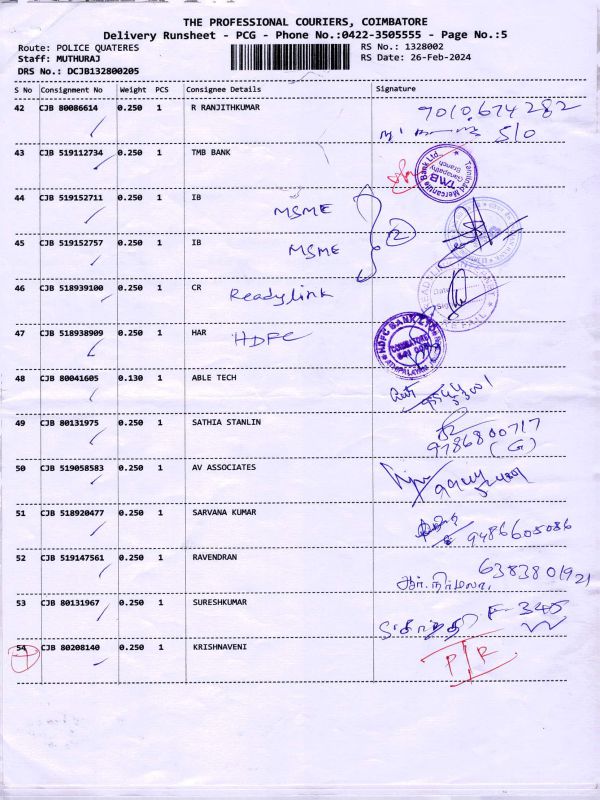 THE PROFESSIONAL COURIERS, COIMBATORE
Delivery Runsheet - PCG - Phone No.:0422-3505555 - Page No.:5
Route: POLICE QUATERES RS No.: 1328002
Staff: MUTHURAJ RS Date: 26-Feb-2024
DRS No.: DCJB132800205
S No Consignment No Weight PCS Consignee Details Signature
42 CJB 80086614 0.250 1 R RANJITHKUMAR 9010.674282
S/O
43 CJB 519112734 0.250 1 TMB BANK
Tamilnad Mercantile Bank Ltd
TMB
Ganapathy
Branch
44 CJB 519152711 0.250 1 IB MSME
2
45 CJB 519152757 0.250 1 IB MSME
46 CJB 518939100 0.250 1 CR Readylink
47 CJB 518938909 0.250 1 HAR HDFC
HDFC BANK
COIMBATORE
48 CJB 80041605 0.130 1 ABLE TECH
49 CJB 80131975 0.250 1 SATHIA STANLIN
9786800717
(G)
50 CJB 519058583 0.250 1 AV ASSOCIATES
51 CJB 518920477 0.250 1 SARVANA KUMAR 9486605086
52 CJB 519147561 0.250 1 RAVENDRAN 6383801921
ஆர்.நிர்மலா
53 CJB 80131967 0.250 1 SURESHKUMAR F-345
54 CJB 80208140 0.250 1 KRISHNAVENI